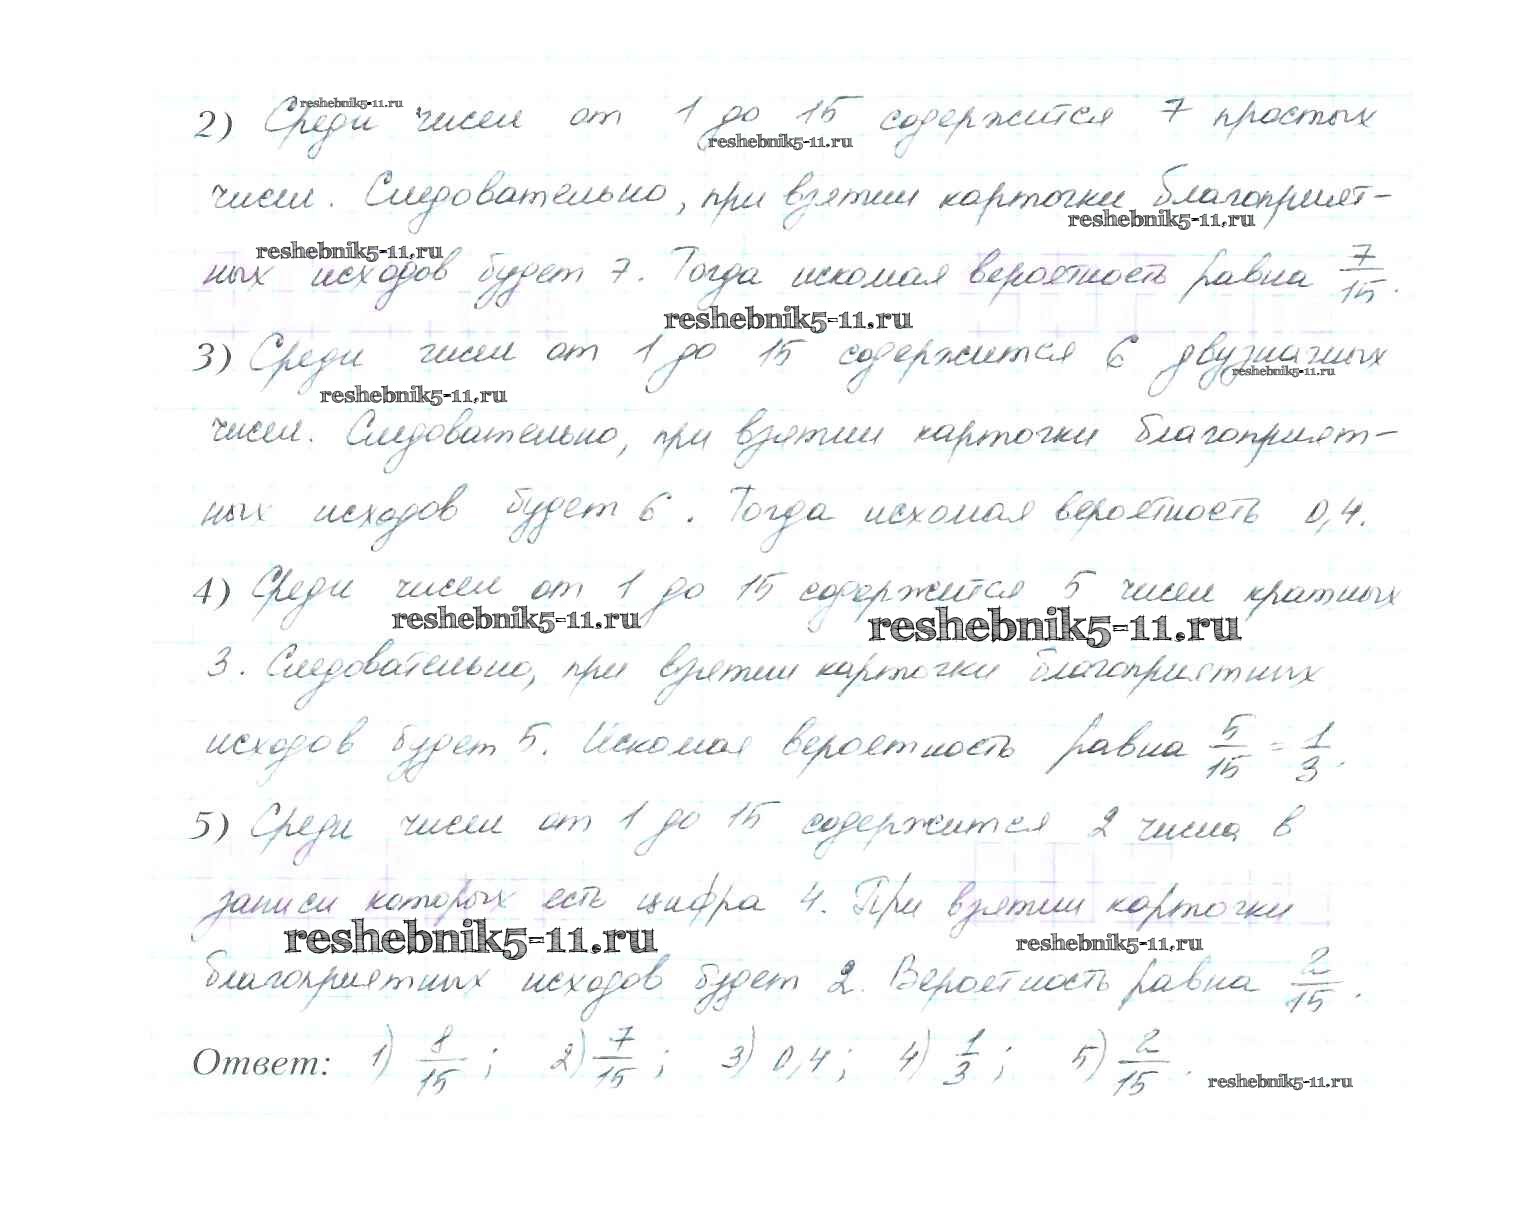 reshebnik5-11.ru
2) Среди чисел от 1 до 15 содержится 7 простых
reshebnik5-11.ru
чисел. Следовательно, при взятии карточки благоприят-
reshebnik5-11.ru
reshebnik5-11.ru
ных исходов будет 7. Тогда искомая вероятность равна 7/15.
reshebnik5-11.ru
3) Среди чисел от 1 до 15 содержится 6 двузначных
reshebnik5-11.ru
reshebnik5-11.ru
чисел. Следовательно, при взятии карточки благоприят-
ных исходов будет 6. Тогда искомая вероятность 0,4.
4) Среди чисел от 1 до 15 содержится 5 чисел кратных
reshebnik5-11.ru
reshebnik5-11.ru
3. Следовательно, при взятии карточки благоприятных
исходов будет 5. Искомая вероятность равна 5/15 = 1/3.
5) Среди чисел от 1 до 15 содержится 2 числа в
записи которых есть цифра 4. При взятии карточки
reshebnik5-11.ru
reshebnik5-11.ru
благоприятных исходов будет 2. Вероятность равна 2/15.
Ответ: 1) 8/15; 2) 7/15; 3) 0,4; 4) 1/3; 5) 2/15.
reshebnik5-11.ru